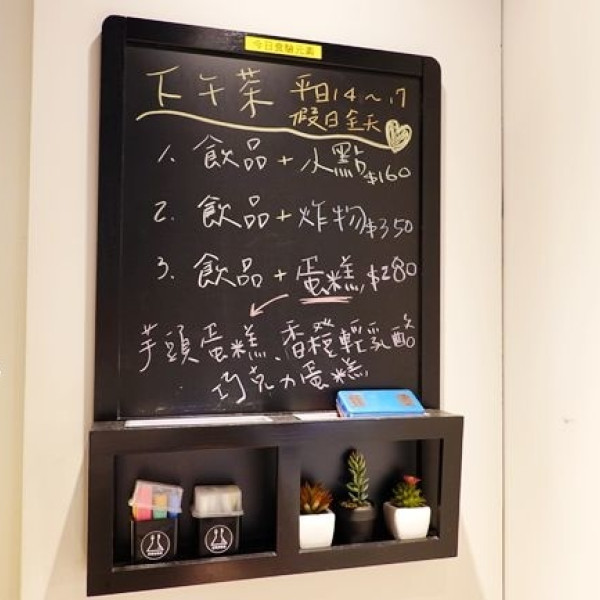 今日食驗元素
下午茶 平日14~17
假日全天
1. 飲品+小點$160
2. 飲品+炸物$350
3. 飲品+蛋糕$280
芋頭蛋糕、香橙輕乳酪
巧克力蛋糕